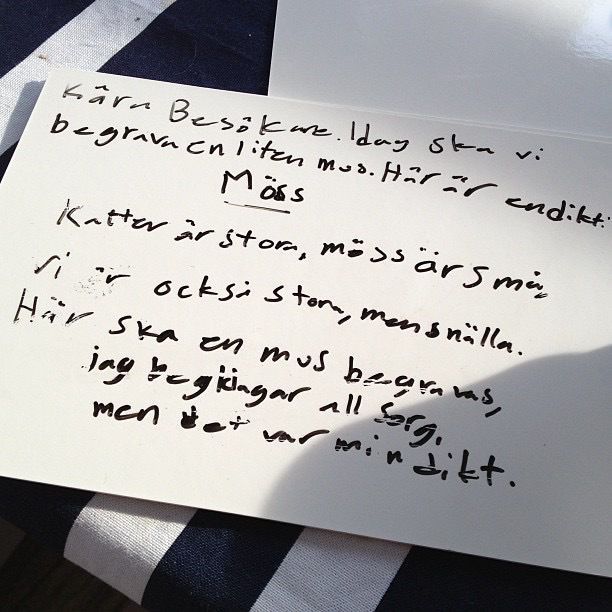 Kära Besökare. Idag ska vi
begrava en liten mus. Här är en dikt:
Möss
Katter är stora, möss är små,
Vi är också stora, men snälla.
Här ska en mus begravas,
jag begklagar all sorg,
men det var min dikt.